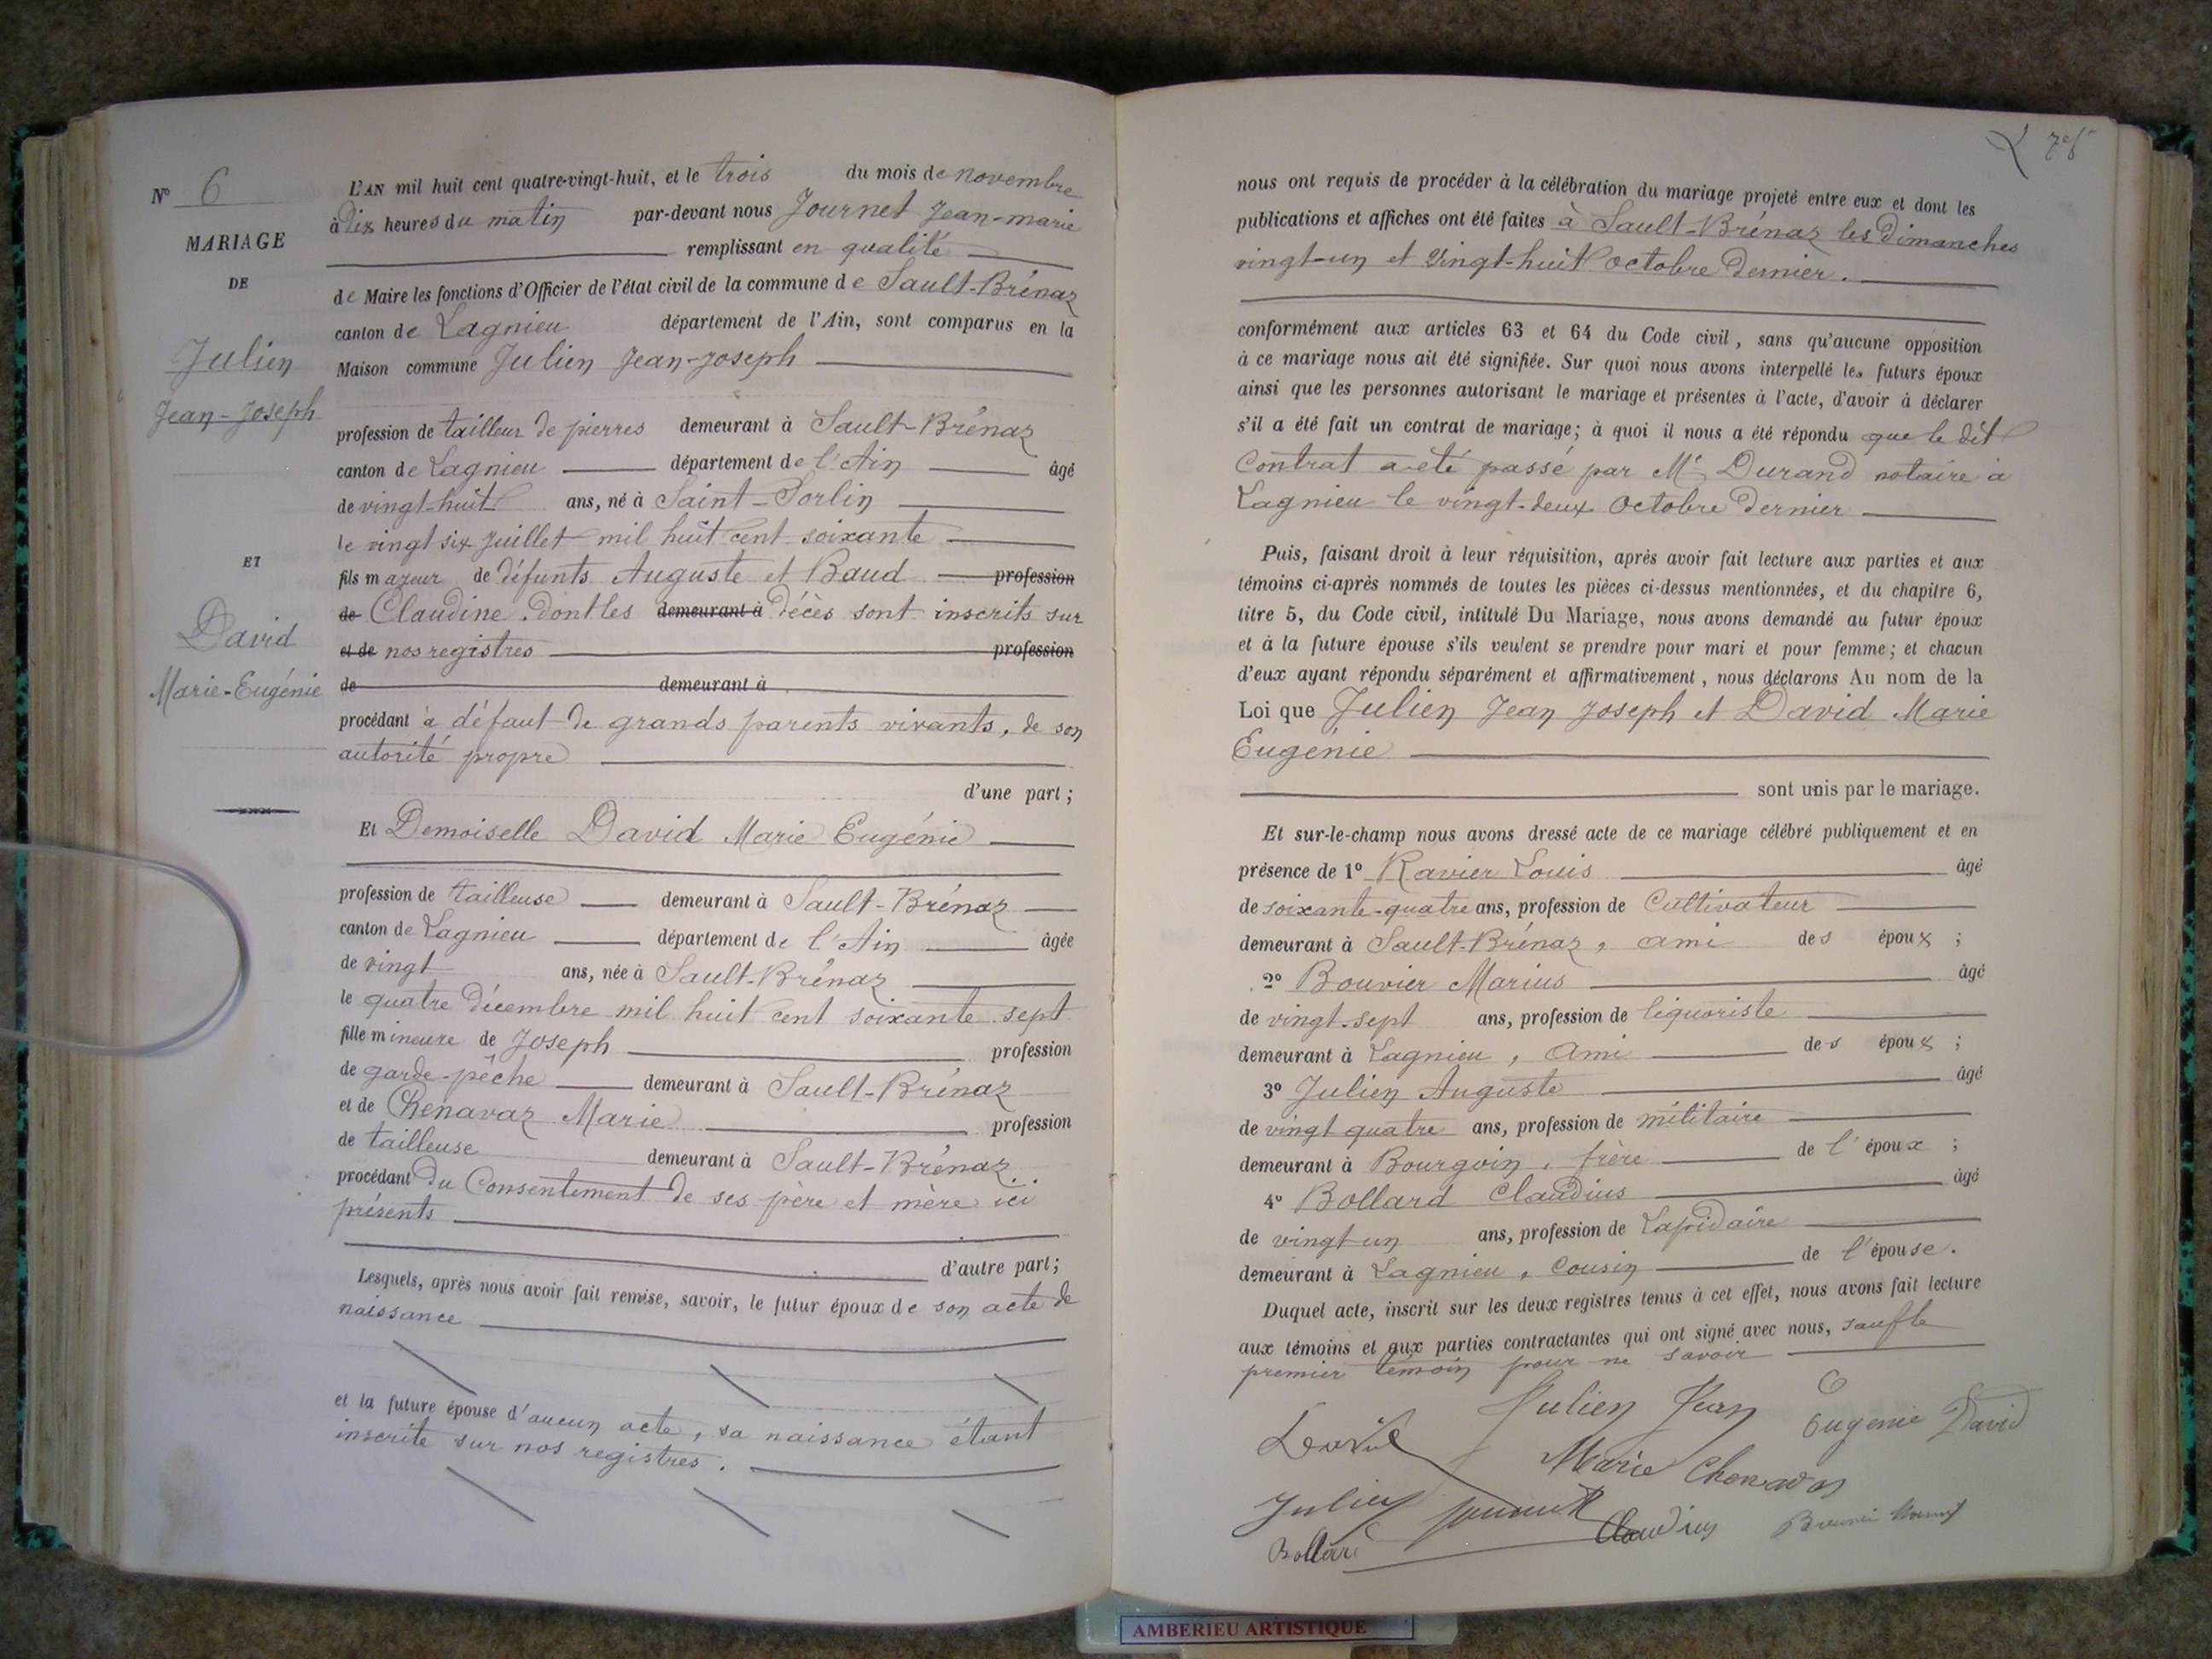 N° 6
MARIAGE
DE
Julien
Jean-Joseph
ET
David
Marie-Eugénie
L'AN mil huit cent quatre-vingt-huit, et le trois du mois de novembre
à dix heures du matin par-devant nous Journet Jean-marie
remplissant en qualité
de Maire les fonctions d'Officier de l'état civil de la commune de Sault-Brénaz
canton de Lagnieu département de l'Ain, sont comparus en la
Maison commune Julien Jean-Joseph
profession de tailleur de pierres demeurant à Sault-Brénaz
canton de Lagnieu département de l'Ain âgé
de vingt-huit ans, né à Saint-Sorlin
le vingt six Juillet mil huit cent soixante
fils majeur de défunts Auguste et Baud profession
de Claudine. dont les demeurant à décès sont inscrits sur
et de nos registres profession
de demeurant à
procédant à défaut de grands parents vivants, de son
autorité propre
d'une part;
Et Demoiselle David Marie Eugénie
profession de tailleuse demeurant à Sault-Brénaz
canton de Lagnieu département de l'Ain âgée
de vingt ans, née à Sault-Brénaz
le quatre décembre mil huit cent soixante sept
fille mineure de Joseph profession
de garde-pêche demeurant à Sault-Brénaz
et de Chenavaz Marie profession
de tailleuse demeurant à Sault-Brénaz
procédant du Consentement de ses père et mère ici
présents
d'autre part;
Lesquels, après nous avoir fait remise, savoir, le futur époux de son acte de
naissance
et la future épouse d'aucun acte, sa naissance étant
inscrite sur nos registres.
nous ont requis de procéder à la célébration du mariage projeté entre eux et dont les
publications et affiches ont été faites à Sault-Brénaz les dimanches
vingt-un et vingt-huit octobre dernier.
conformément aux articles 63 et 64 du Code civil, sans qu'aucune opposition
à ce mariage nous ait été signifiée. Sur quoi nous avons interpellé les futurs époux
ainsi que les personnes autorisant le mariage et présentes à l'acte, d'avoir à déclarer
s'il a été fait un contrat de mariage; à quoi il nous a été répondu que le dit
Contrat a été passé par Me Durand notaire à
Lagnieu le vingt-deux Octobre dernier
Puis, faisant droit à leur réquisition, après avoir fait lecture aux parties et aux
témoins ci-après nommés de toutes les pièces ci-dessus mentionnées, et du chapitre 6,
titre 5, du Code civil, intitulé Du Mariage, nous avons demandé au futur époux
et à la future épouse s'ils veulent se prendre pour mari et pour femme; et chacun
d'eux ayant répondu séparément et affirmativement, nous déclarons Au nom de la
Loi que Julien Jean Joseph et David Marie
Eugénie
sont unis par le mariage.
Et sur-le-champ nous avons dressé acte de ce mariage célébré publiquement et en
présence de 1° Ravier Louis âgé
de soixante-quatre ans, profession de Cultivateur
demeurant à Sault-Brénaz, ami des époux ;
2° Bouvier Marius âgé
de vingt-sept ans, profession de liquoriste
demeurant à Lagnieu, Ami des époux ;
3° Julien Auguste âgé
de vingt quatre ans, profession de militaire
demeurant à Bourgoin, frère de l'époux ;
4° Bollard Claudius âgé
de vingt un ans, profession de Lapidaire
demeurant à Lagnieu, Cousin de l'épouse.
Duquel acte, inscrit sur les deux registres tenus à cet effet, nous avons fait lecture
aux témoins et aux parties contractantes qui ont signé avec nous, sauf le
premier témoin pour ne savoir
Julien Jean
Eugenie David
David
Marie Chenavas
Julien
Journet
Bollard
Claudius
AMBERIEU ARTISTIQUE